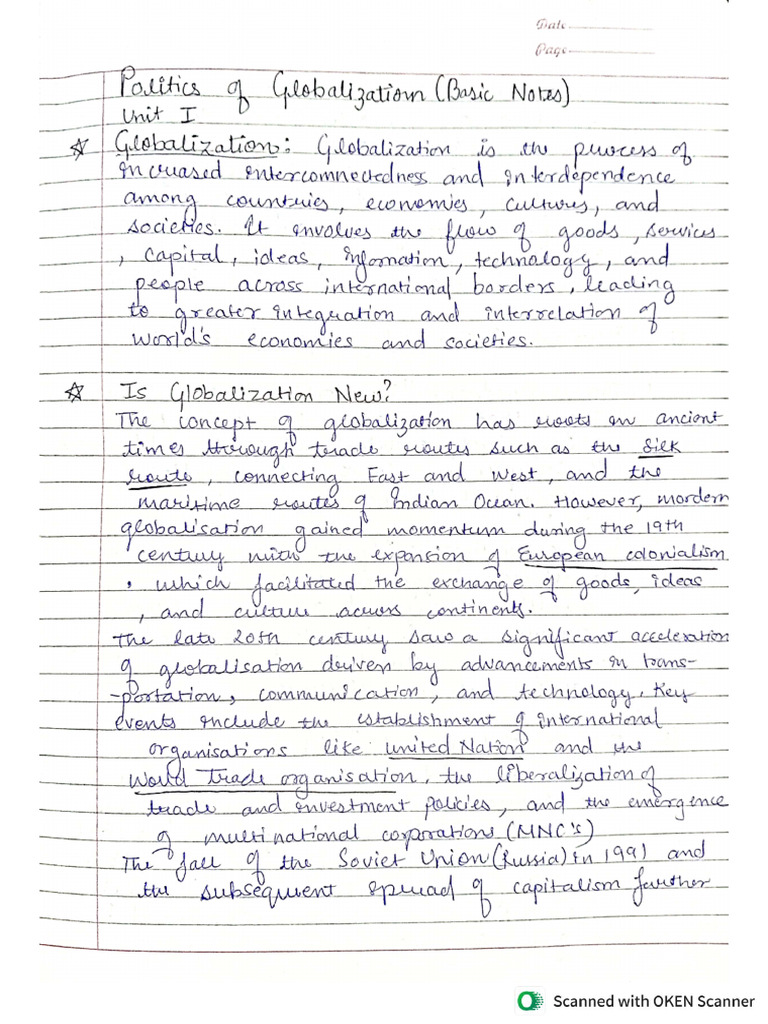 Date
Page
Politics of Globalization (Basic Notes)
Unit I
☆ Globalization: Globalization is the process of
increased interconnectedness and interdependence
among countries, economies, cultures, and
societies. It involves the flow of goods, services
, capital, ideas, information, technology, and
people across international borders, leading
to greater integration and interrelation of
world's economies and societies.
☆ Is Globalization New?
The concept of globalization has roots in ancient
times through trade routes such as the Silk
route, connecting East and West, and the
maritime routes of Indian Ocean. However, mordern
globalisation gained momentum during the 19th
century with the expansion of European colonialism
, which facilitated the exchange of goods, ideas
, and culture across continents.
The late 20th century saw a significant acceleration
of globalisation driven by advancements in trans-
-portation, communication, and technology. Key
events include the establishment of international
organisations like United Nation and the
World Trade organisation, the liberalization of
trade and investment policies, and the emergence
of multinational corporations (MNC's)
The fall of the Soviet Union (Russia) in 1991 and
the subsequent spread of capitalism further
Scanned with OKEN Scanner